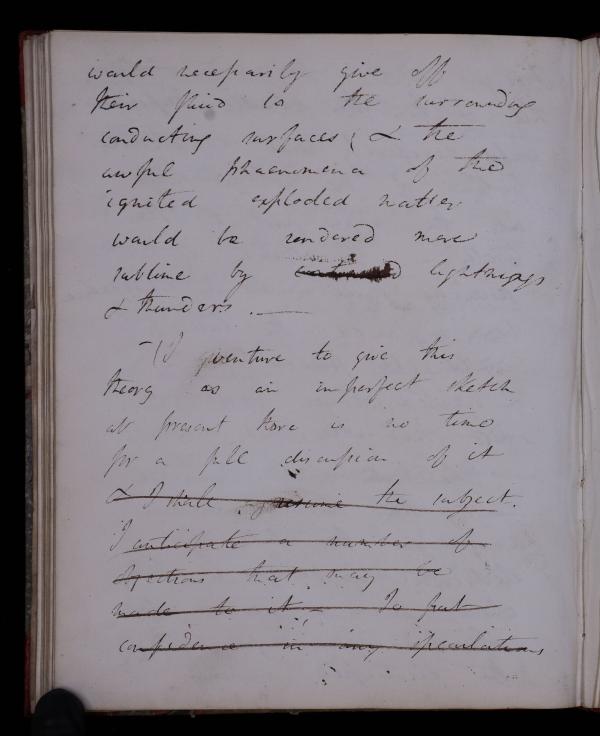 would necessarily give off
their fluid to the surrounding
conducting surfaces; & the
awful phaenomena of the
ignited exploded matter
would be rendered more
sublime by lightnings
& thunders. —
—(I venture to give this
theory as an imperfect sketch
at present there is no time
for a full discussion of it
& I shall resume the subject.
I anticipate a number of
objections that may be
made to it — To put
confidence in any speculations